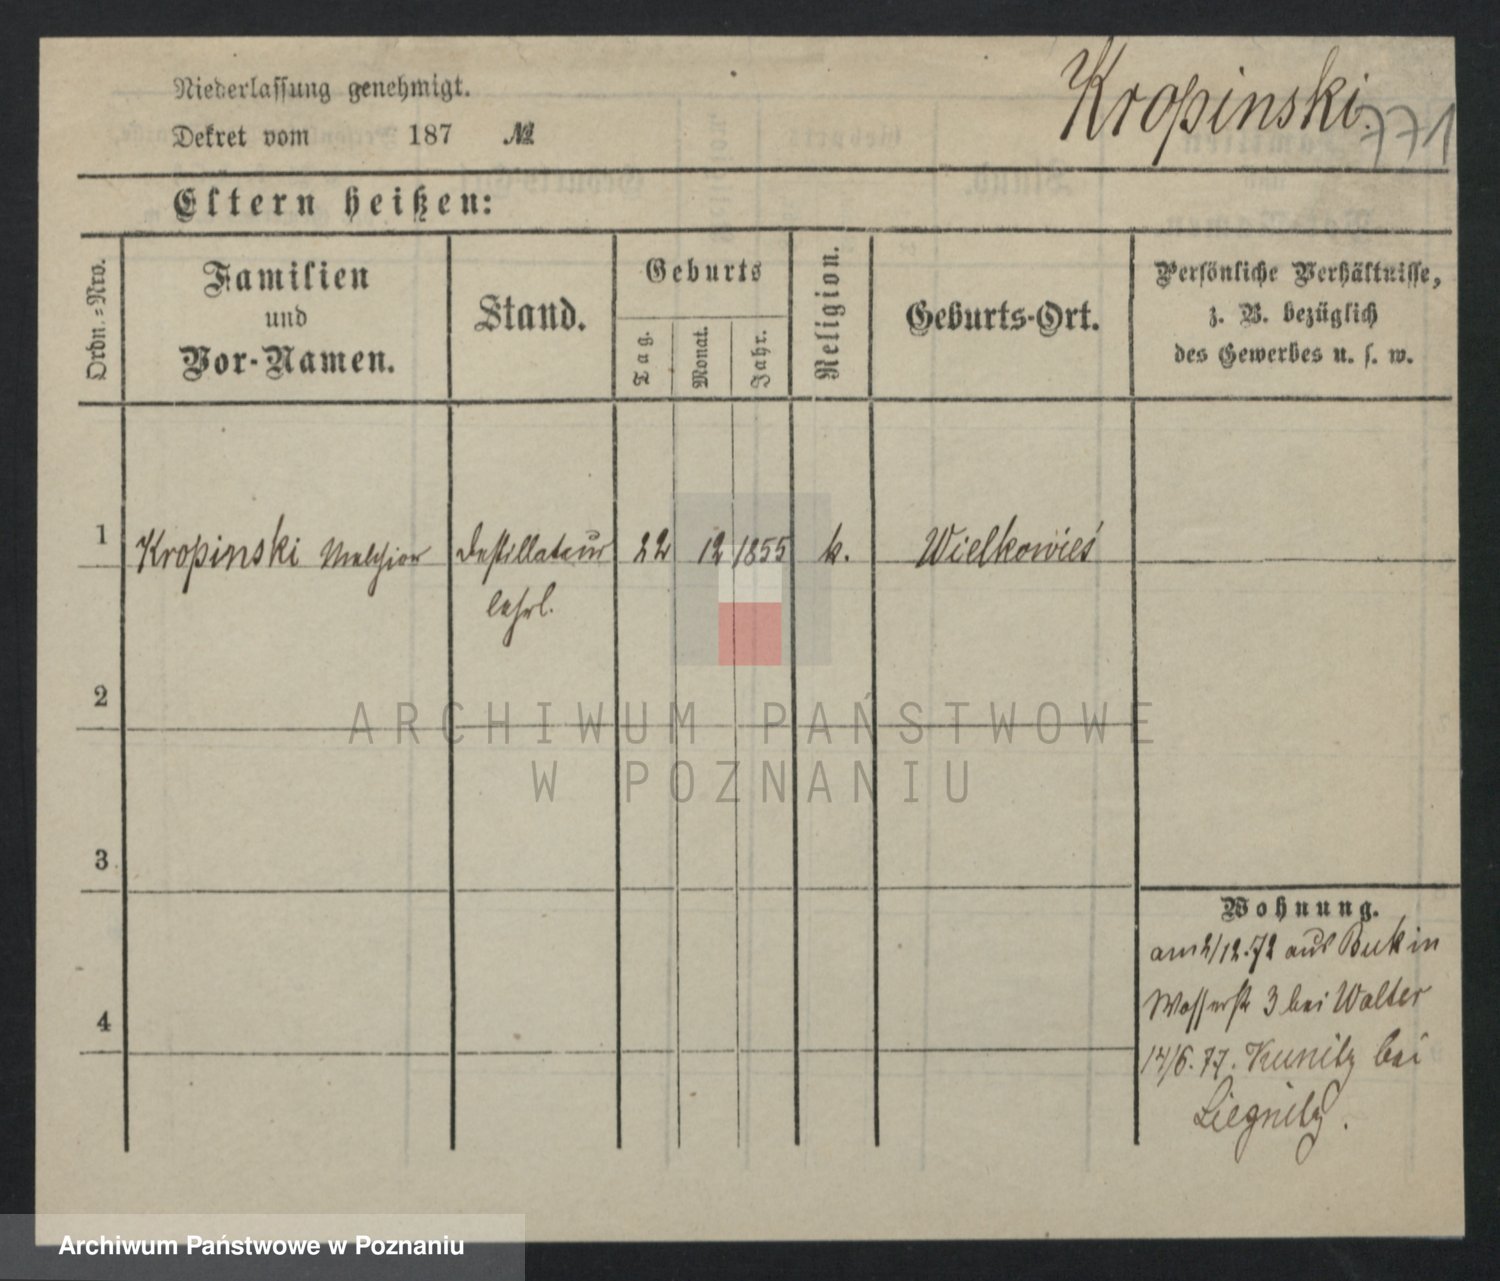 Niederlassung genehmigt.
Dekret vom 187 №
Kropinski.
771
Eltern heißen:
Ordn.=Nro.
Familien
und
Vor-Namen.
Stand.
Geburts
Tag.
Monat.
Jahr.
Religion.
Geburts-Ort.
Persönliche Verhältnisse,
z. B. bezüglich
des Gewerbes u. s. w.
1 Kropinski Melchior Destillateur 22 12 1855 k. Wielkowieś
lehrl.
2
3
4
Wohnung.
am 2/12.72 aus Buk in
Wasserstr 3 bei Walter
14/6.77. Kunitz bei
Liegnitz.
ARCHIWUM PAŃSTWOWE
W POZNANIU
Archiwum Państwowe w Poznaniu